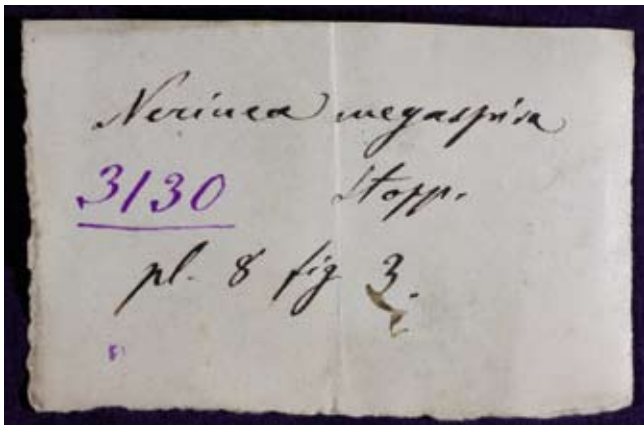 Nerinea megaspira
3130 Stopp.
pl. 8 fig 3.